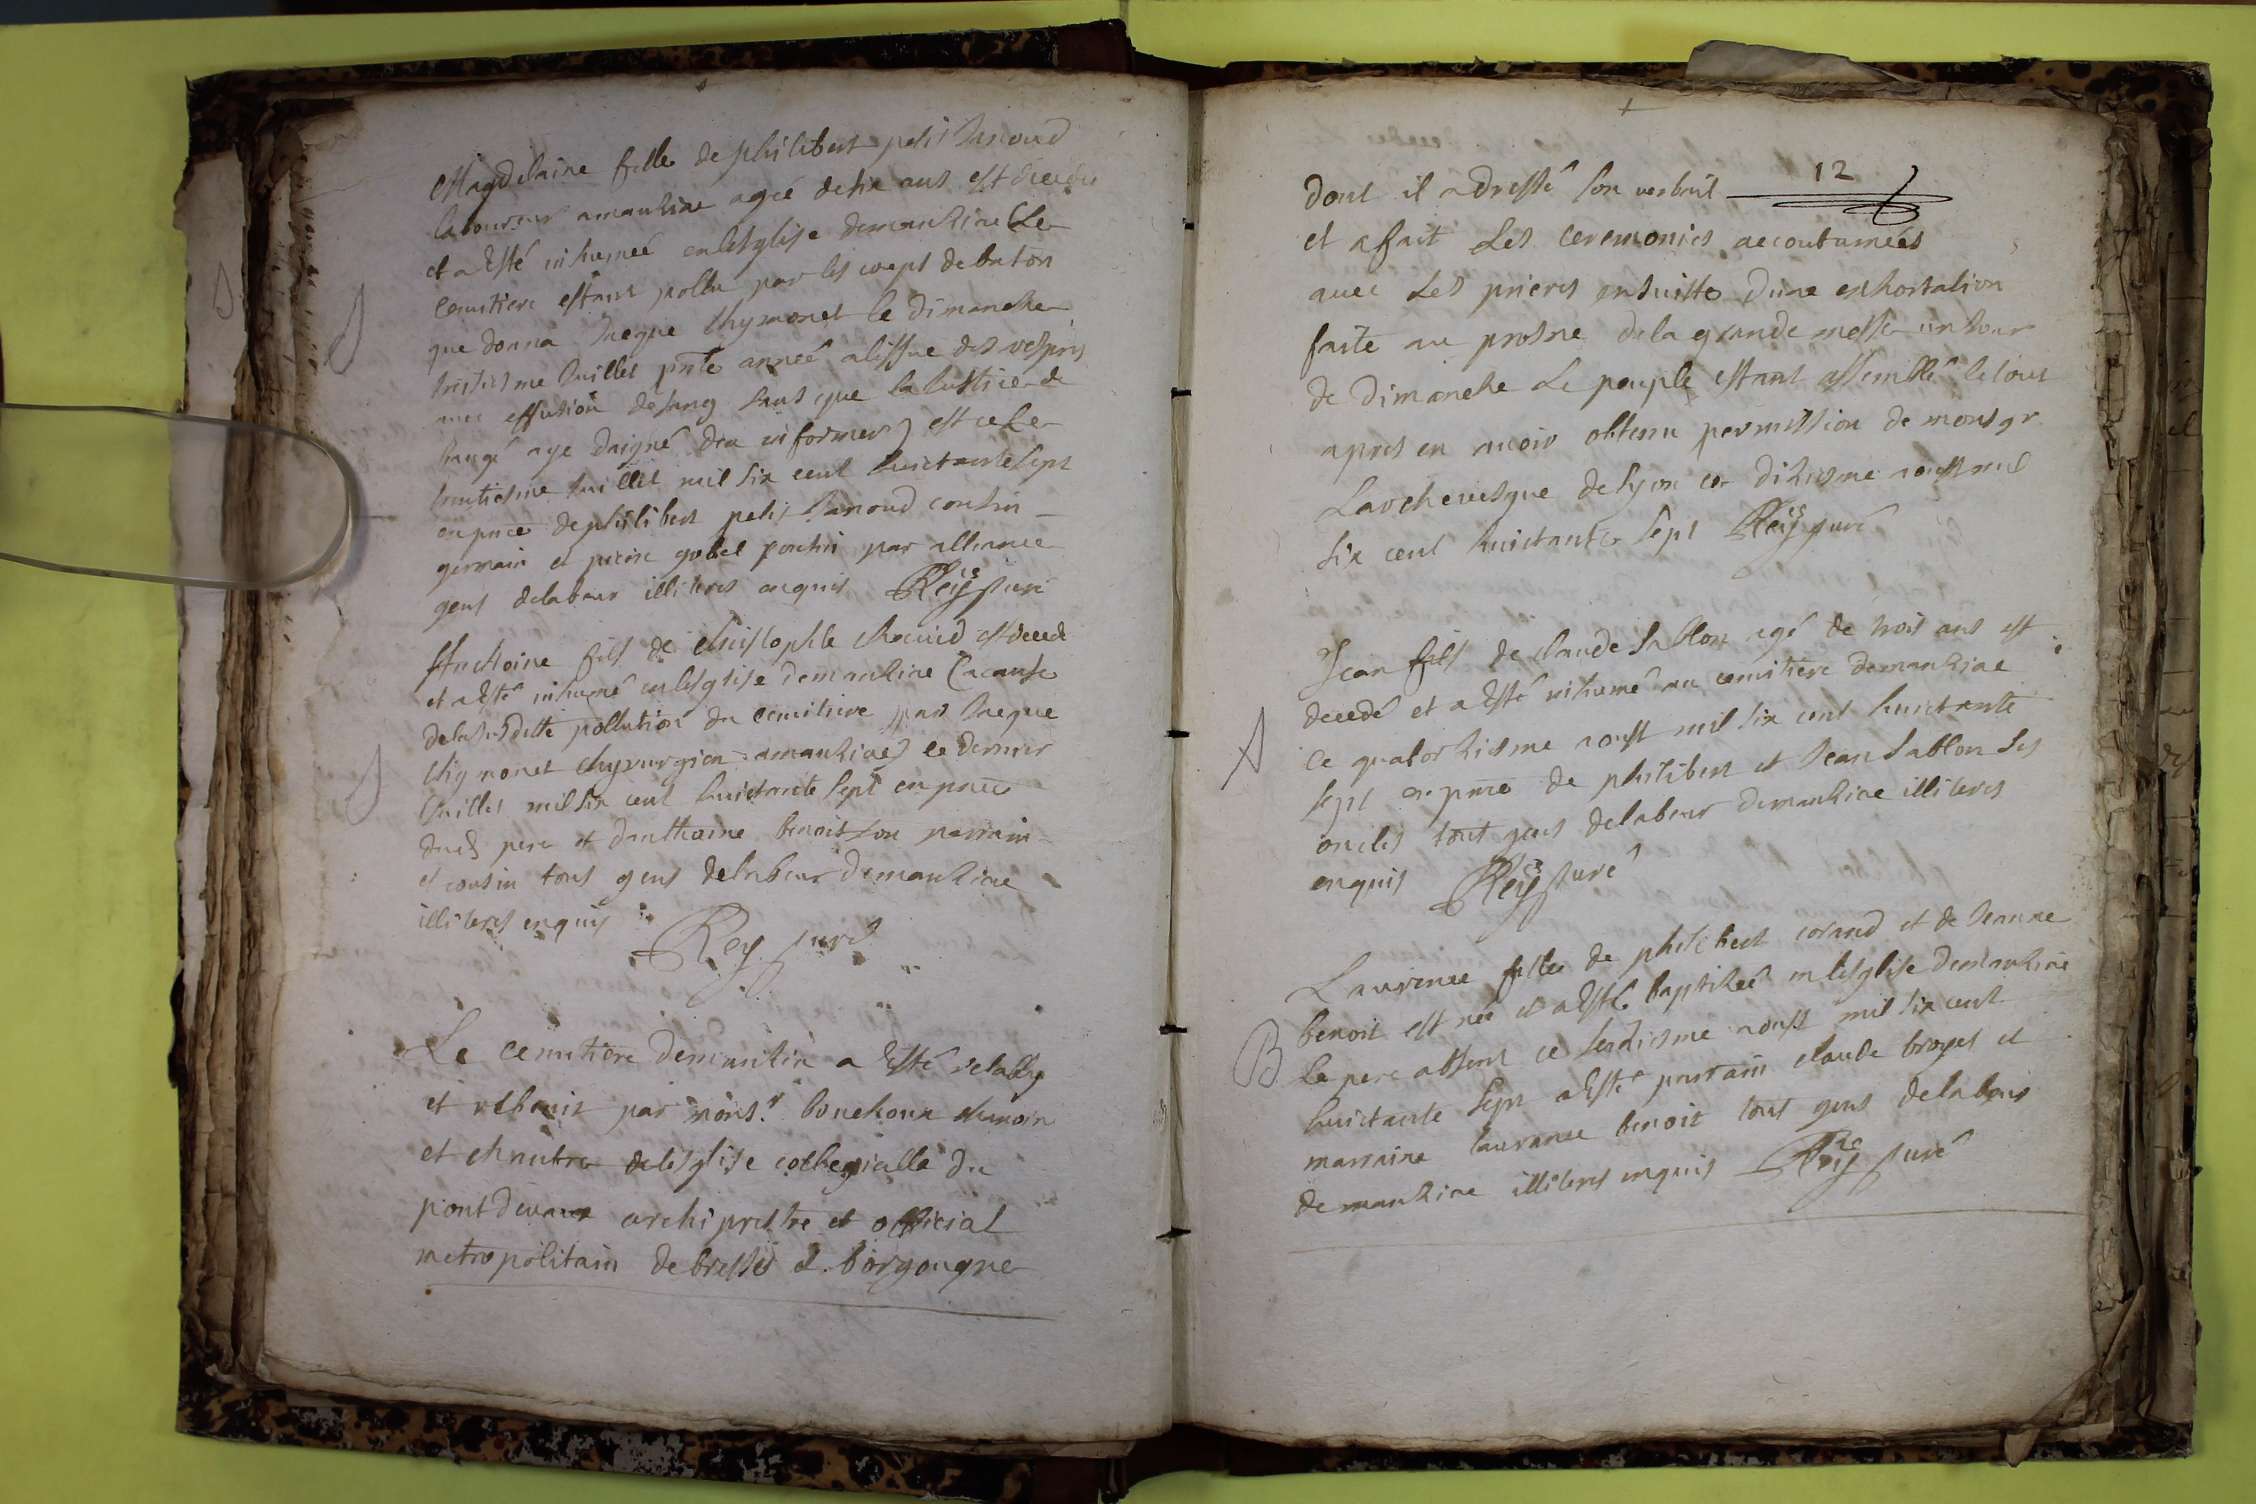 Magdelaine fille de philibert petit Janoud
laboureur a manziae agée de six ans est decedée
et a Esté inhumée en lesglise de manziae (Le
cemitiere estant pollu par les coups de baton
que donna Jacque Chymonet le dimanche
huictiesme Juillet pnte année a lissue des vespres
avec effusion de sang sans que la Justice de
aye daigné den informer) est ce le
trentiesme Juillet mil six cent huictante sept
en pnce de philibert petit Janoud cousin
germain et pierre gobel cousin par alliance
gens de labeur illiteres enquis Rey curé
Anthoine fils de christophle est decedé
et a Esté inhumé en lesglise de manziae (a cause
de la susditte pollution du cemitiere par Jacque
Chymonet chyrurgien a manziae) le dernier
Juillet mil six cent huictante sept en pnce
dud pere et danthoine benoit son parrain
et cousin tous gens de labeur de manziae
illiteres enquis
Rey curé
Le cemitiere de manzia a Esté restably
et rebenit par mons.r bouchoux chanoin
et chantre de lesglise collegialle du
pont de vaux archiprestre et official
metropolitain de bresse et borgougne
12
dont il a dressé son verbail
et a fait Les ceremonies accoutumées
avec Les prieres ensuitte dune exhortation
faite au prosne de la grande messe un Jour
de dimanche Le peuple estant assemblé le tout
apres en avoir obtenu permission de monsgr
Larchevesque de Lyon ce diziesme aoust mil
six cent huictante sept Rey curé
Jean fils de claude Sablon agé de trois ans est
decedé et a Esté inhumé au cemitiere de manziae
A
ce quatorziesme aoust mil six cent huictante
sept en pnce de philibert et Jean Sablon ses
oncles tout gens de labeur de manziae illiteres
enquis Rey curé
Laurence fille de philibert corand et de Jeanne
benoit est née et a Esté baptizée en lesglise de manziae
B
le pere absent ce seiziesme aoust mil six cent
huictante sept a Esté parrain claude broyet et
marraine laurance benoit tous gens de labeur
de manziae illiteres enquis Rey curé